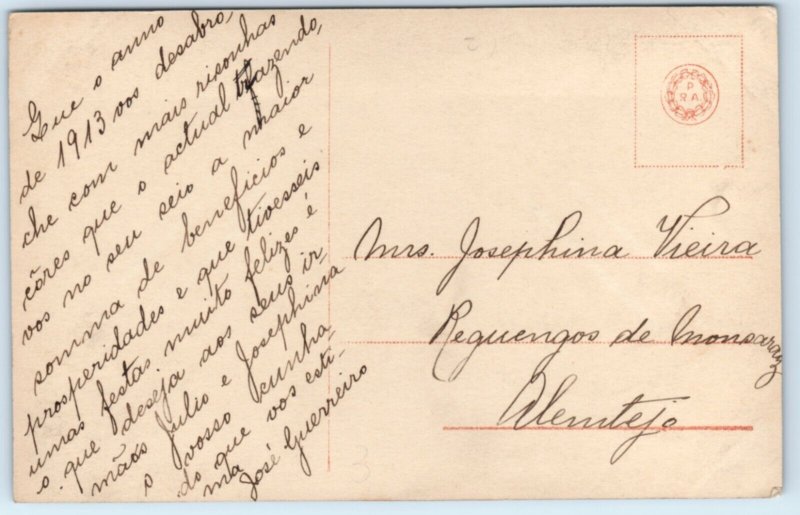 Que o anno
de 1913 vos desabro-
che com mais risonhas
côres que o actual trazendo,
vos no seu seio a maior
somma de beneficios e
prosperidades e que tivesseis
umas festas muito felizes é
o que deseja aos seus ir-
mãos Julio e Josephina
o vosso cunha-
do que vos esti-
ma
José Guerreiro
P
R A
Mrs. Josephina Vieira
Reguengos de Monsaraz
Alemtejo